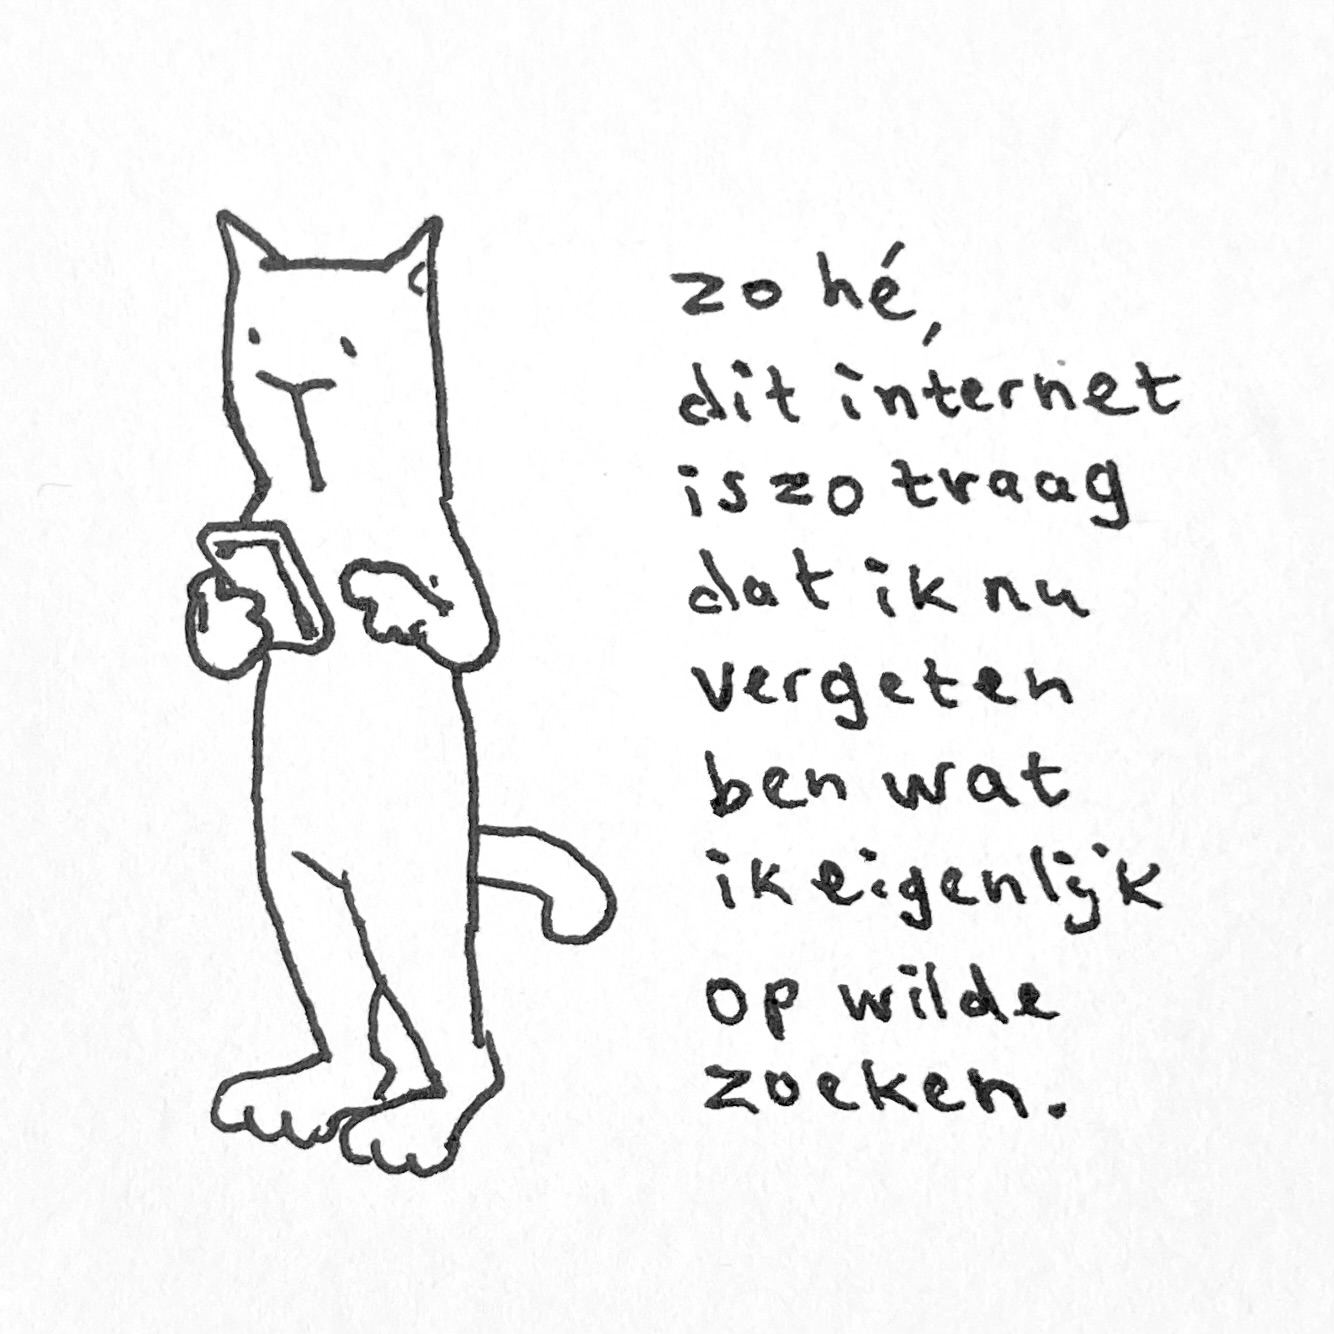 zo hé,
dit internet
is zo traag
dat ik nu
vergeten
ben wat
ik eigenlijk
op wilde
zoeken.